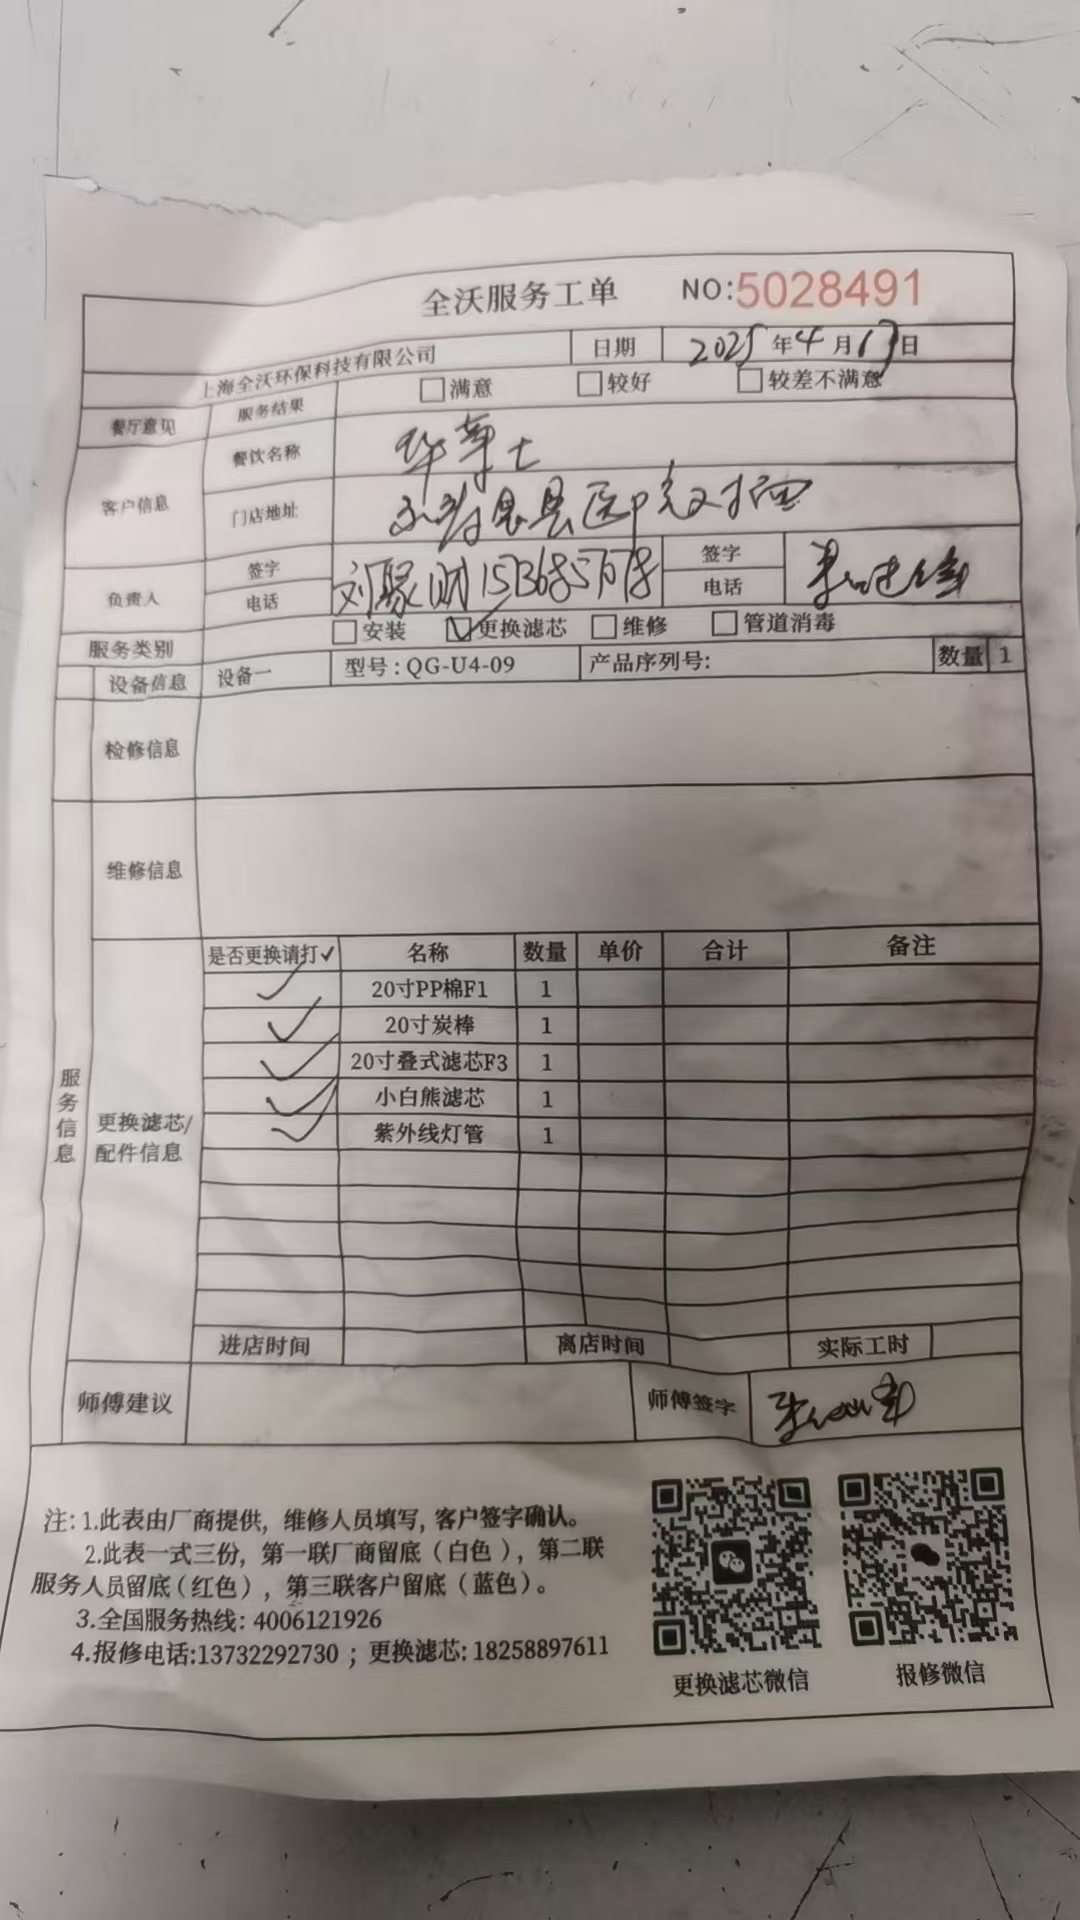 全沃服务工单 NO:5028491
上海全沃环保科技有限公司 日期 2025年4月17日
餐厅意见 服务结果 满意 较好 较差不满意
客户信息 餐饮名称 华莱士
门店地址 县医院对面
负责人 签字 电话 刘 签字 电话
服务类别 安装 更换滤芯 维修 管道消毒
设备信息 设备一 型号:QG-U4-09 产品序列号: 数量 1
检修信息
维修信息
服务信息
更换滤芯/配件信息
是否更换请打✓ 名称 数量 单价 合计 备注
✓ 20寸PP棉F1 1
✓ 20寸炭棒 1
✓ 20寸叠式滤芯F3 1
✓ 小白熊滤芯 1
✓ 紫外线灯管 1
进店时间 离店时间 实际工时
师傅建议 师傅签字
注: 1.此表由厂商提供, 维修人员填写, 客户签字确认。
2.此表一式三份, 第一联厂商留底（白色）, 第二联
服务人员留底（红色）, 第三联客户留底（蓝色）。
3.全国服务热线: 4006121926
4.报修电话:13732292730 ; 更换滤芯: 18258897611
更换滤芯微信 报修微信